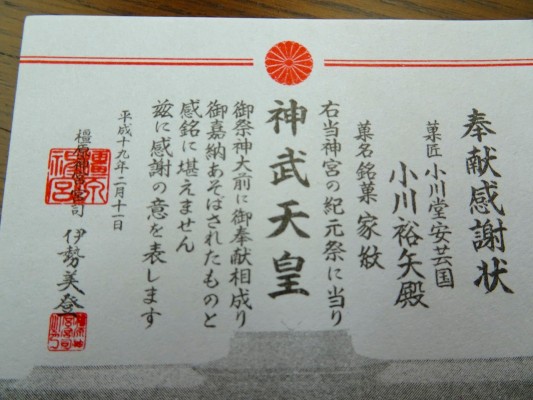 奉献感謝状
菓匠 小川堂安芸国
小川裕矢殿
菓名銘菓 家紋
右当神宮の紀元祭に当り
神武天皇
御祭神大前に御奉献相成り
御嘉納あそばされたものと
感銘に堪えません
玆に感謝の意を表します
平成十九年二月十一日
橿原神宮宮司 伊勢美登